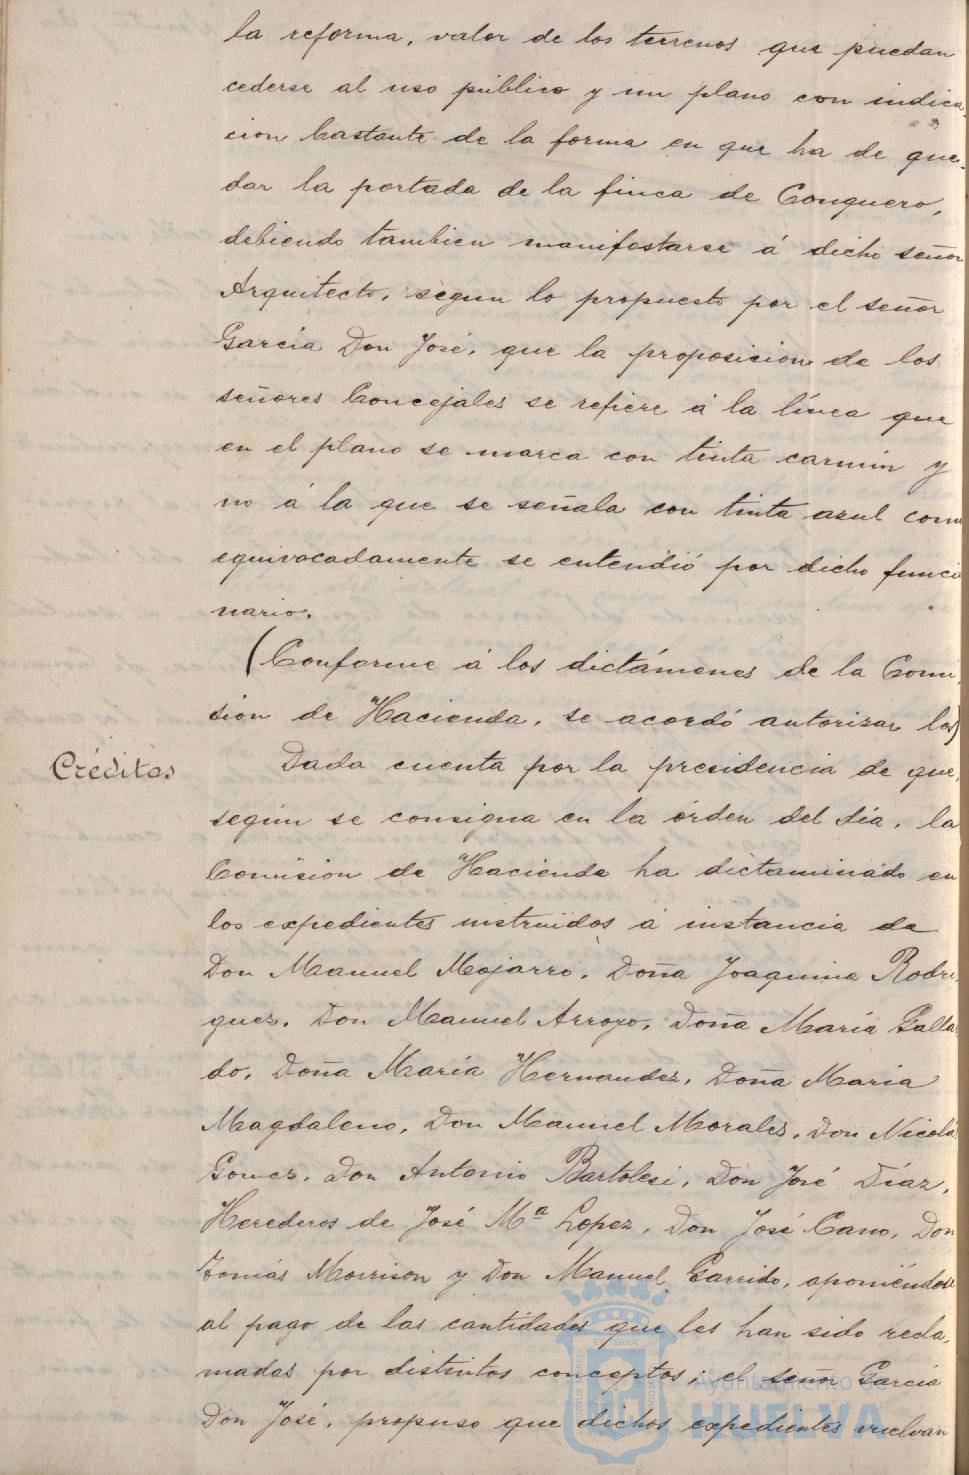 la reforma, valor de los terrenos que puedan
cederse al uso público y un plano con indica-
cion bastante de la forma en que ha de que-
dar la portada de la finca de Conquero,
debiendo tambien manifestarse á dicho señor
Arquitecto, segun lo propuesto por el señor
García Don José, que la proposicion de los
señores Concejales se refiere á la línea que
en el plano se marca con tinta carmin y
no á la que se señala con tinta azul como
equivocadamente se entendió por dicho funcio
nario.
(Conforme á los dictámenes de la Comi-
sion de Hacienda, se acordó autorizar los)
Créditos
Dada cuenta por la presidencia de que,
según se consigna en la órden del dia, la
Comision de Hacienda ha dictaminado en
los expedientes instruidos á instancia de
Don Manuel Mojarro, Doña Joaquina Rodri-
guez, Don Manuel Arroyo, Doña María Galla
do, Doña María Hernandez, Doña Maria
Magdaleno, Don Manuel Morales, Don Nicolás
Gomez, Don Antonio Bartolesi, Don José Díaz,
Herederos de José Mª Lopez, Don José Cano, Don
Tomás Morrison y Don Manuel Garrido, oponiéndose
al pago de las cantidades que les han sido recla-
madas por distintos conceptos; el señor García
Don José, propuso que dichos expedientes vuelvan
Ayuntamiento de
HUELVA